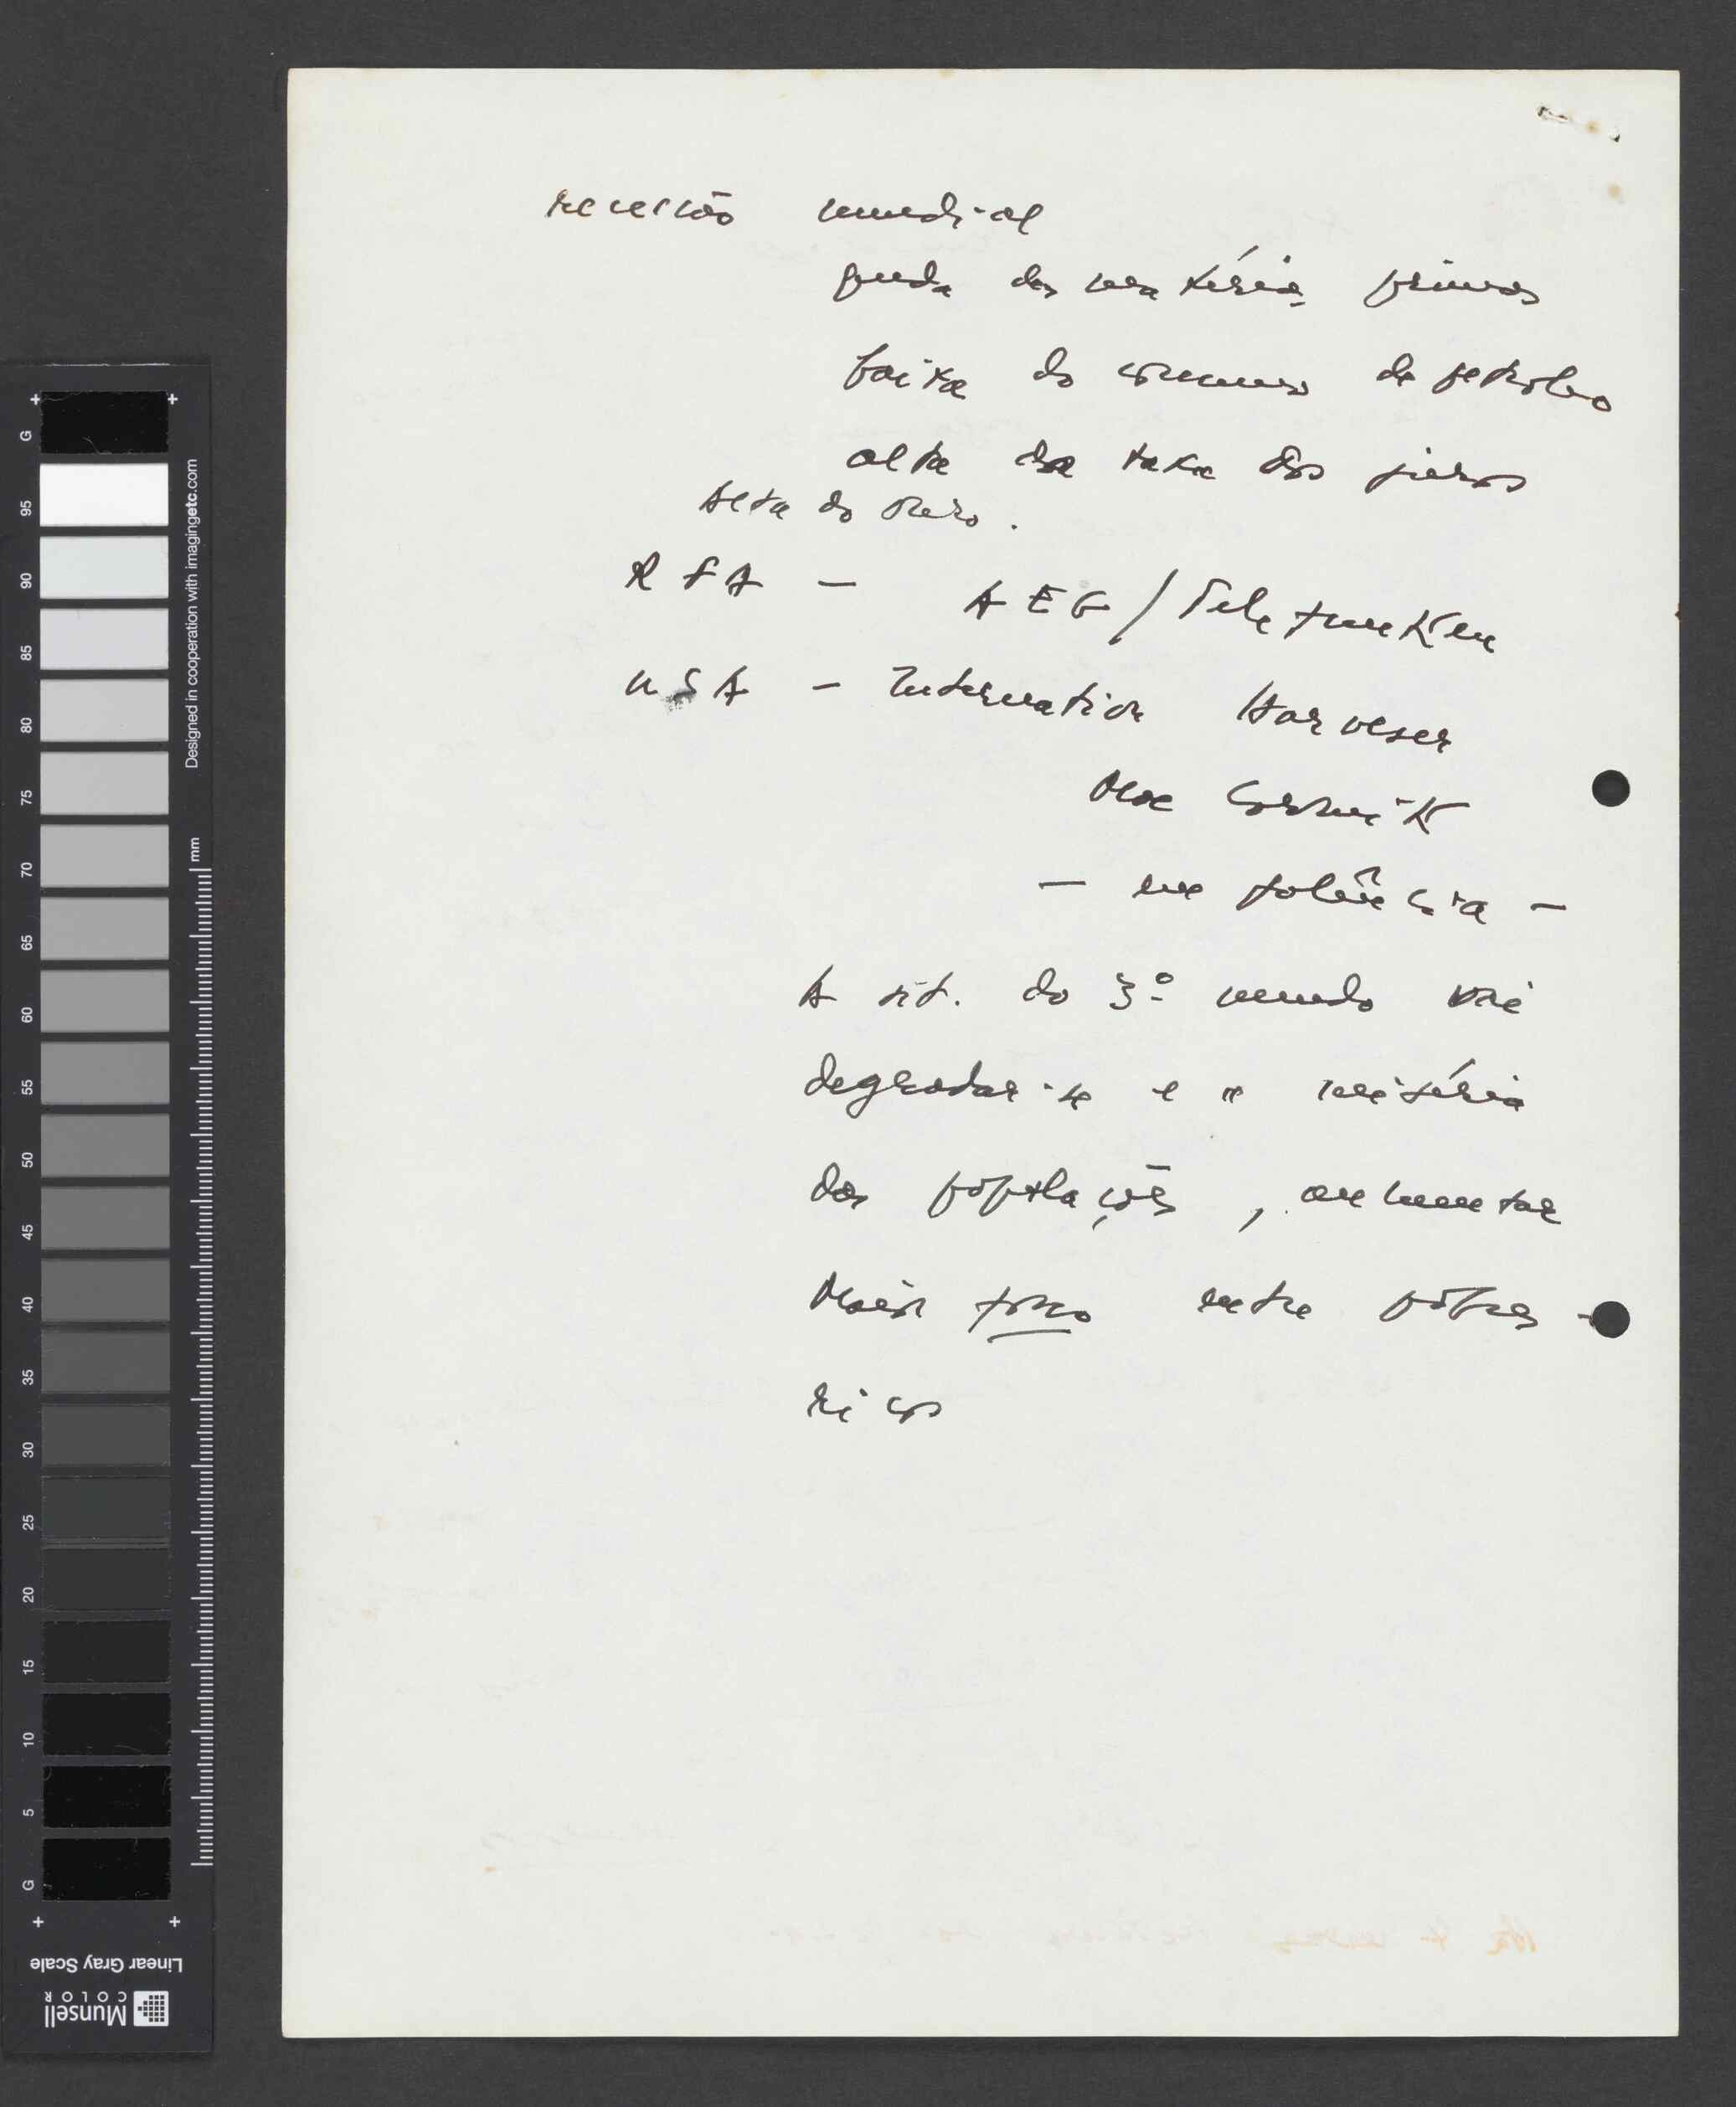 recessão mundial
queda das matérias primas
baixa do consumo de petroleo
alta da taxa dos juros
Alta do ouro.
RFA - AEG/Telefunken
USA - Internation Harveser
Mac Cormik
- na falência -
A sit. do 3º mundo vai
degradar-se e a miséria
das populações, aumentar
Maior fosso entre pobres -
ricos
G 95 90 85 80 75 70 65 60 55 50 45 40 35 30 25 20 15 10 5 G
Designed in cooperation with imagingetc.com
mm
Linear Gray Scale
Munsell
COLOR